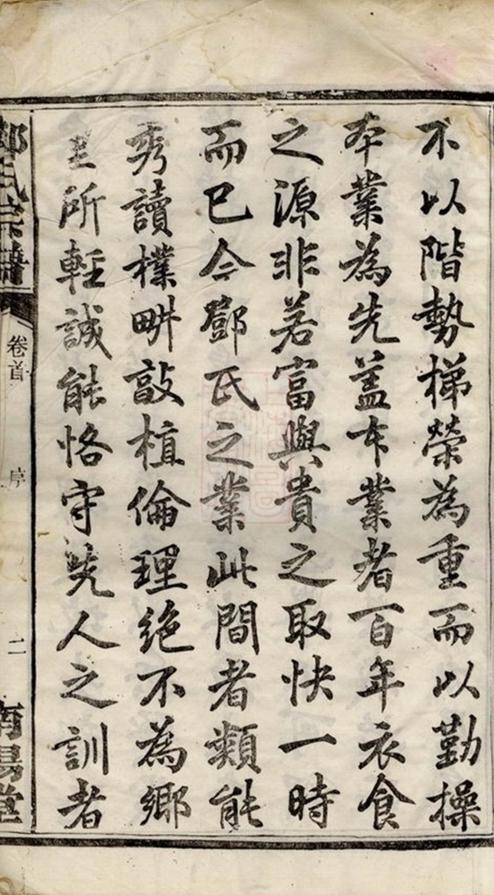 不以階勢梯榮為重而以勤操
本業為先盖本業者百年衣食
之源非若富與貴之取快一時
而已今鄧氏之業此間者類能
秀讀樸畊敦植倫理絕不為鄉
里所輕誠能恪守先人之訓者
鄧氏宗譜
卷首
序
二
南陽堂